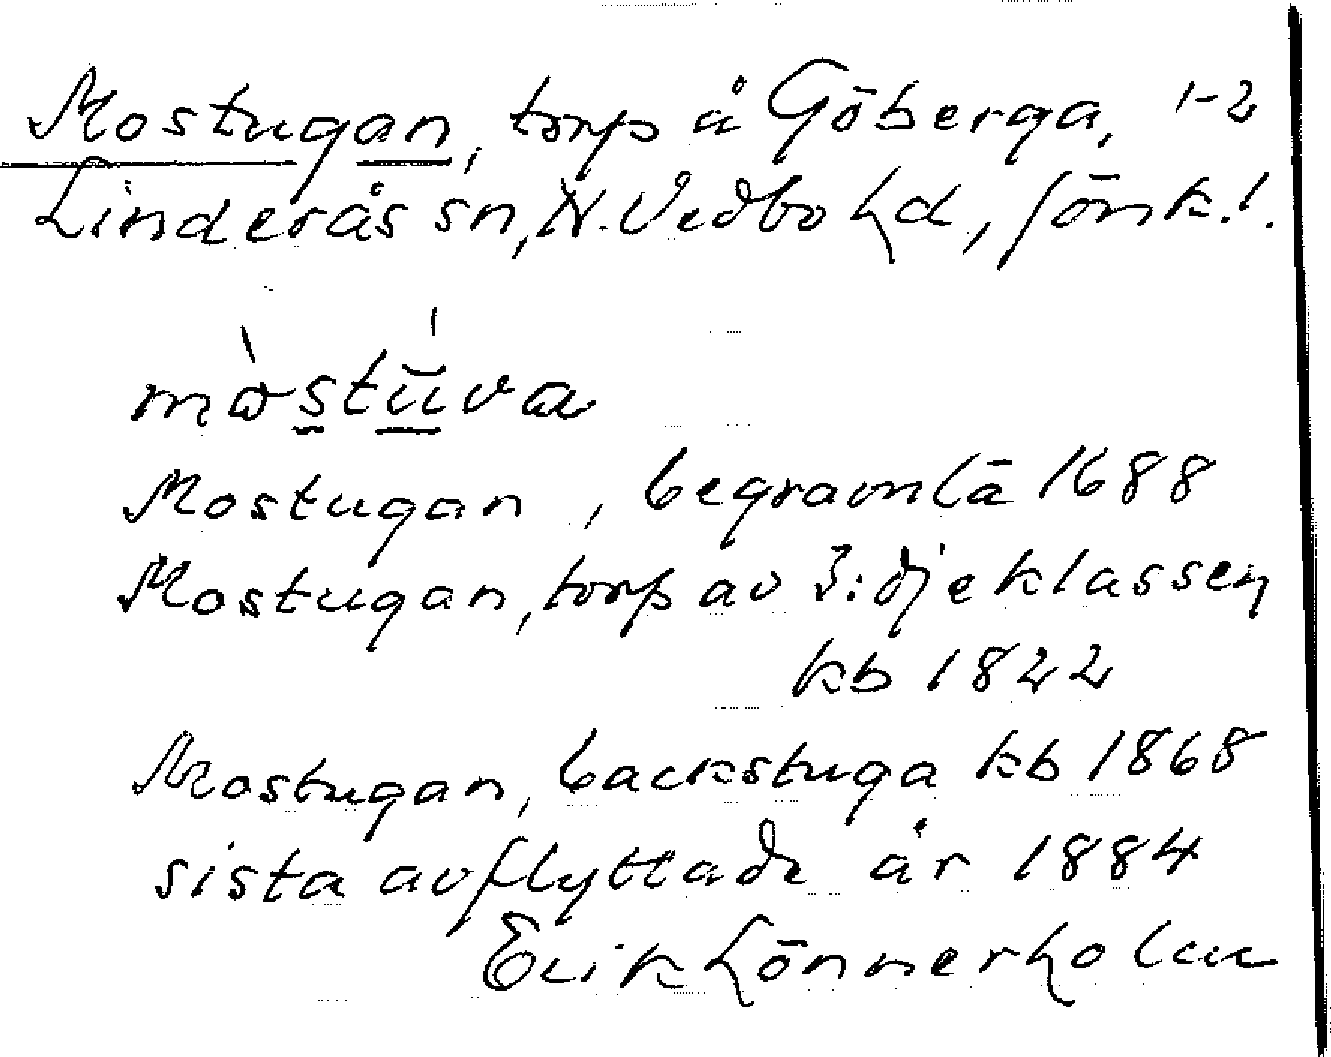 Mostugan, torp å Göberga, 1-2
Linderås sn, N. Vedbo hd, Jönk. l.
mòstúva
Mostugan, begravnlä 1688
Mostugan, torp av 3:dje klassen
kb 1822
Mostugan, backstuga kb 1868
sista avflyttade år 1884
Erik Lönnerholm